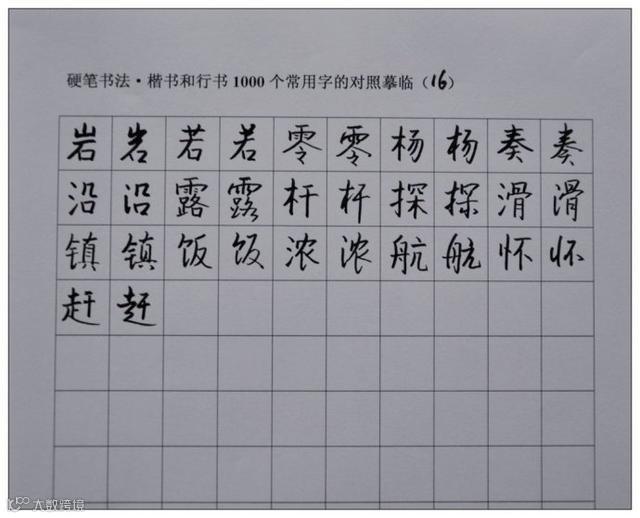 硬笔书法·楷书和行书1000个常用字的对照摹临（16）
岩岩若若零零杨杨奏奏
沿沿露露杆杆探探滑滑
镇镇饭饭浓浓航航怀怀
赶赶
大数跨境